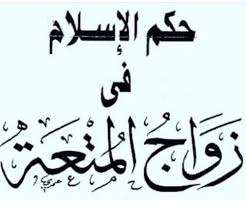 حكم الإسلام
في
زَوَاجُ المُتعَة